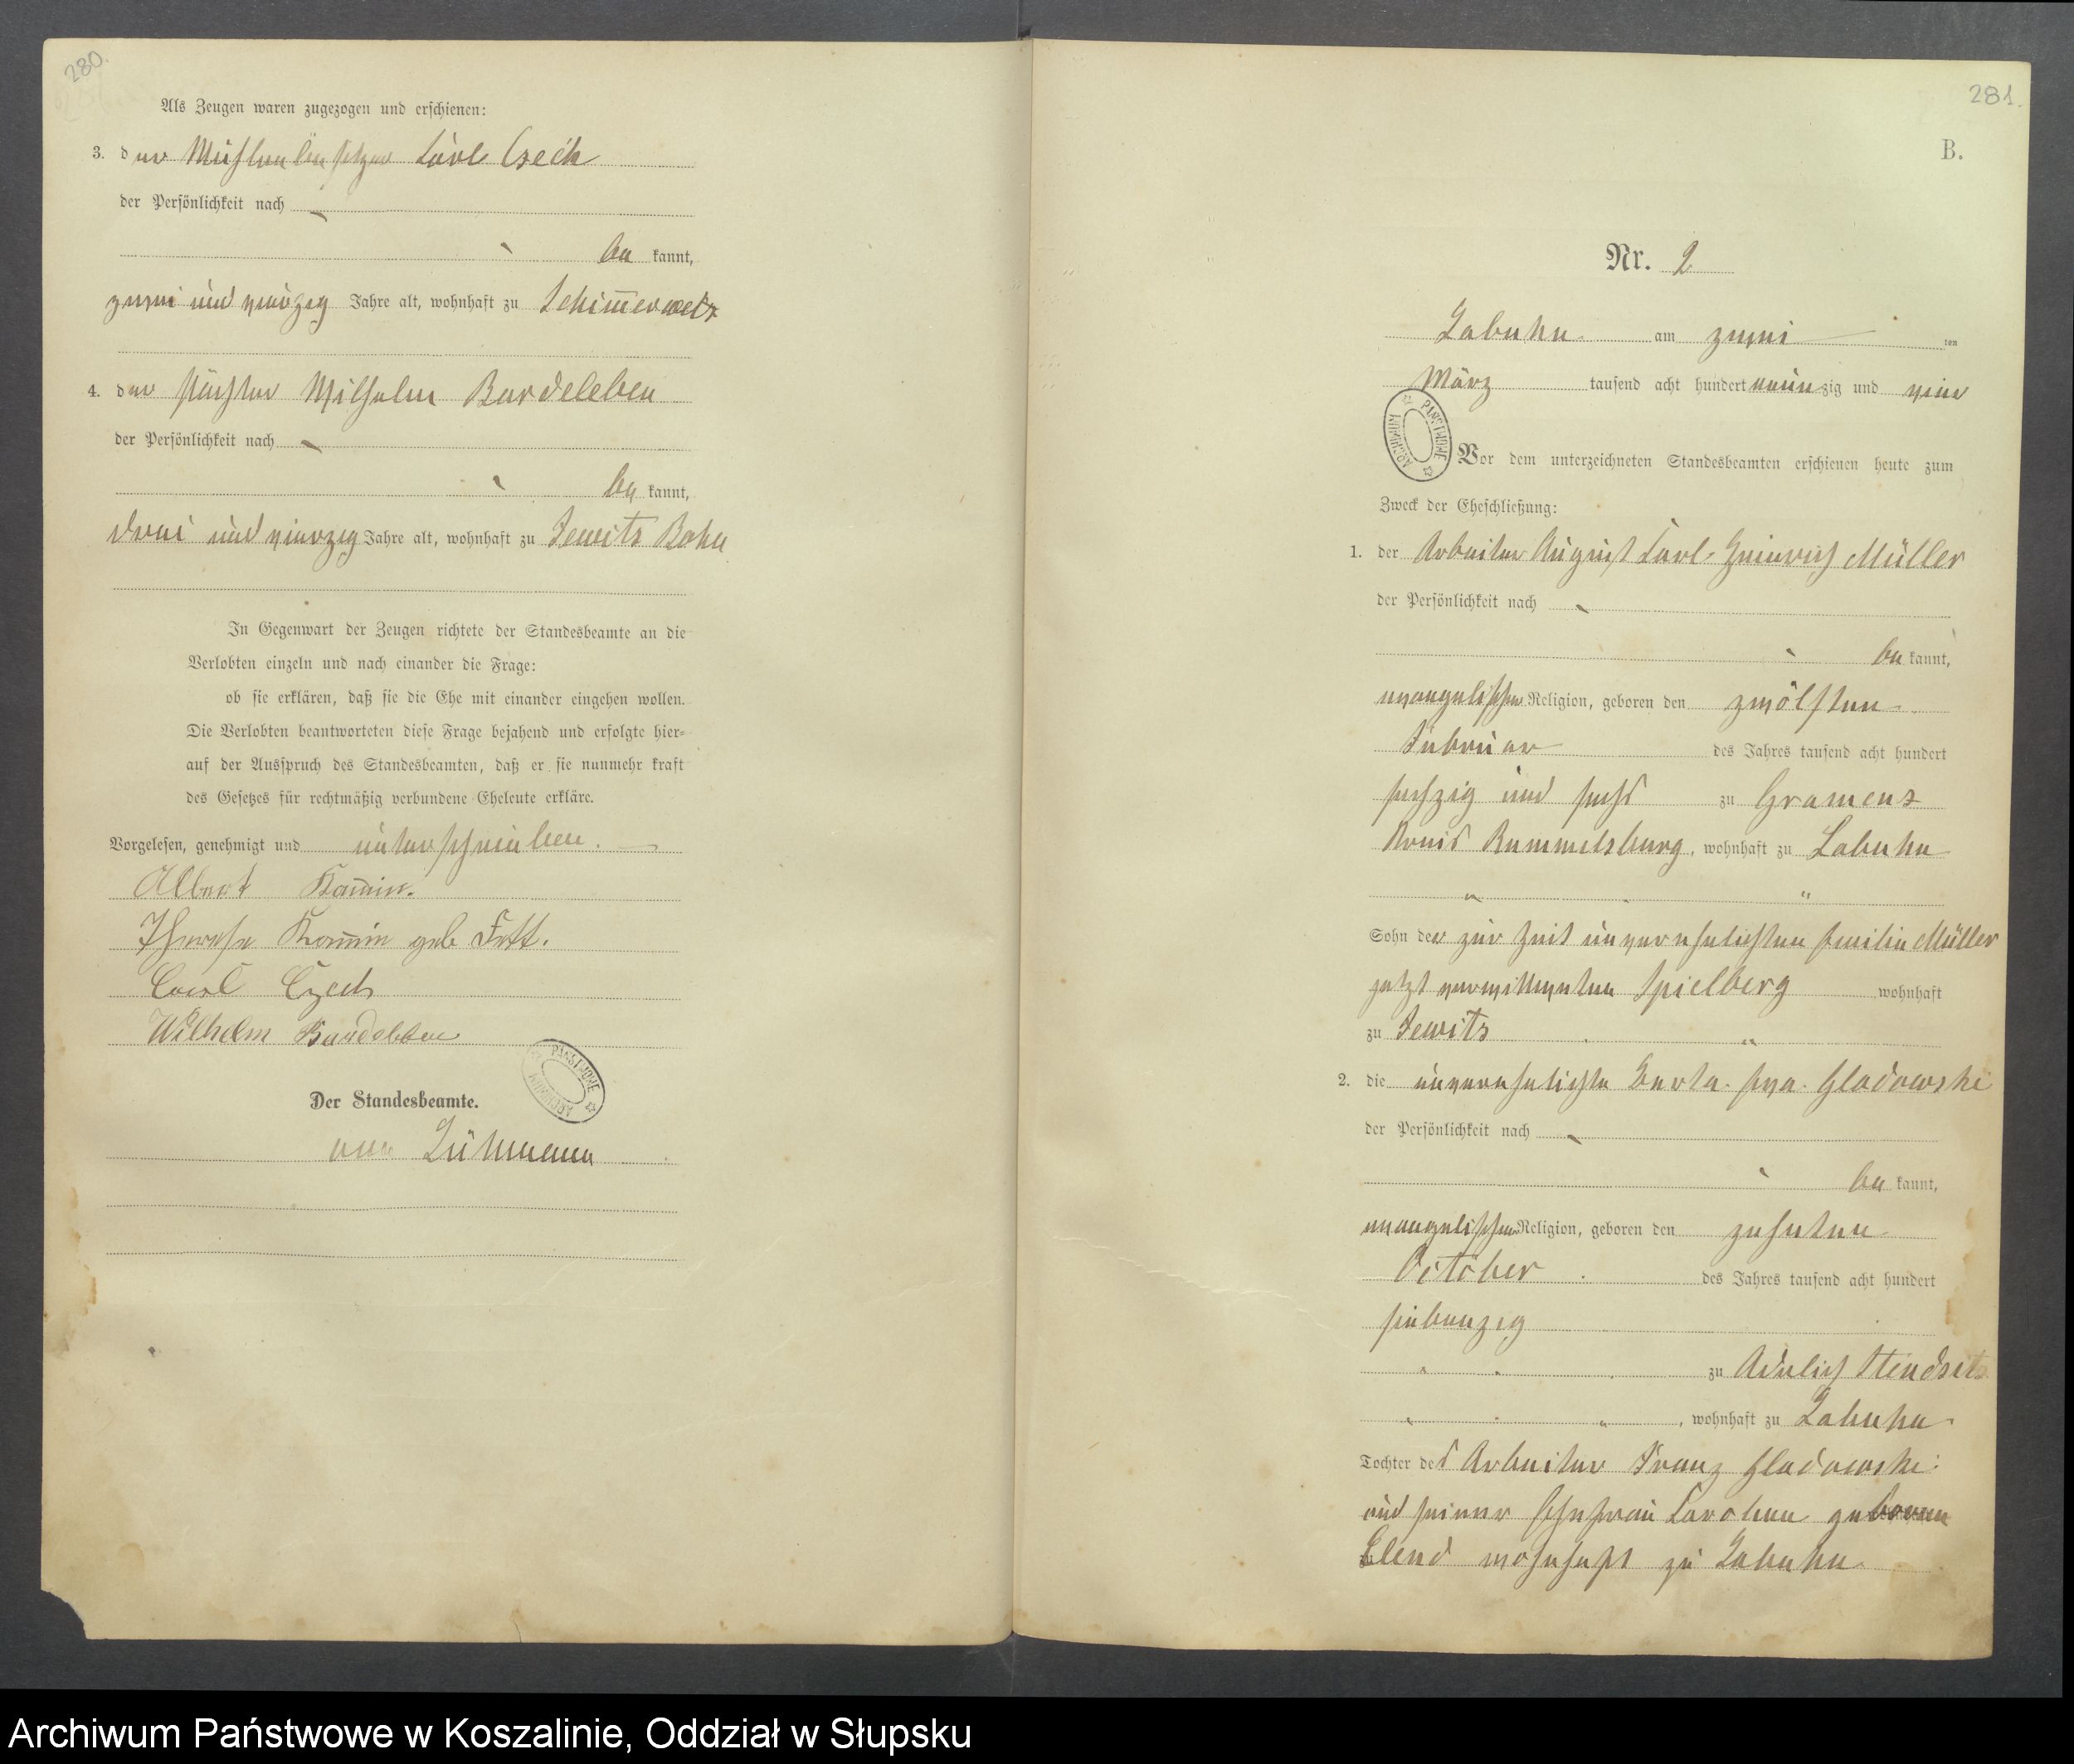 280.
Als Zeugen waren zugezogen und erschienen:
3. der Mühlenbesitzer Carl Czech
der Persönlichkeit nach
bekannt,
zwei und vierzig Jahre alt, wohnhaft zu Schimmerwitz
4. der Förster Wilhelm Bardeleben
der Persönlichkeit nach
bekannt,
drei und vierzig Jahre alt, wohnhaft zu Jewitz Bohn
In Gegenwart der Zeugen richtete der Standesbeamte an die
Verlobten einzeln und nach einander die Frage:
ob sie erklären, daß sie die Ehe mit einander eingehen wollen.
Die Verlobten beantworteten diese Frage bejahend und erfolgte hier=
auf der Ausspruch des Standesbeamten, daß er sie nunmehr kraft
des Gesetzes für rechtmäßig verbundene Eheleute erkläre.
Vorgelesen, genehmigt und unterschrieben.
Albert Kom̄in.
Therese Kom̄in geb Fett.
Carl Czech
Wilhelm Bardeleben
ARCHIWUM PAŃSTWOWE
Der Standesbeamte.
281.
B.
Nr. 2
Labuhn am zwei ten
März tausend acht hundert neunzig und ein
ARCHIWUM PAŃSTWOWE
Vor dem unterzeichneten Standesbeamten erschienen heute zum
Zweck der Eheschließung:
1. der Arbeiter August Carl Heinrich Müller
der Persönlichkeit nach
bekannt,
evangelischer Religion, geboren den zwölften
Februar des Jahres tausend acht hundert
sechzig und sechs zu Gramenz
Kreis Rummelsburg, wohnhaft zu Labuhn
Sohn der zur Zeit unverehelichten Emilie Müller
jetzt verwittweten Spielberg wohnhaft
zu Jewitz
2. die unverehelichte Berta Eva Gladowski
der Persönlichkeit nach
bekannt,
evangelischer Religion, geboren den zehnten
October des Jahres tausend acht hundert
siebenzig
zu Adelich
, wohnhaft zu Labuhn
Tochter des Arbeiter Franz Gladowski
und seiner Ehefrau Caroline geboren
Elend wohnhaft zu Labuhn
Archiwum Państwowe w Koszalinie, Oddział w Słupsku